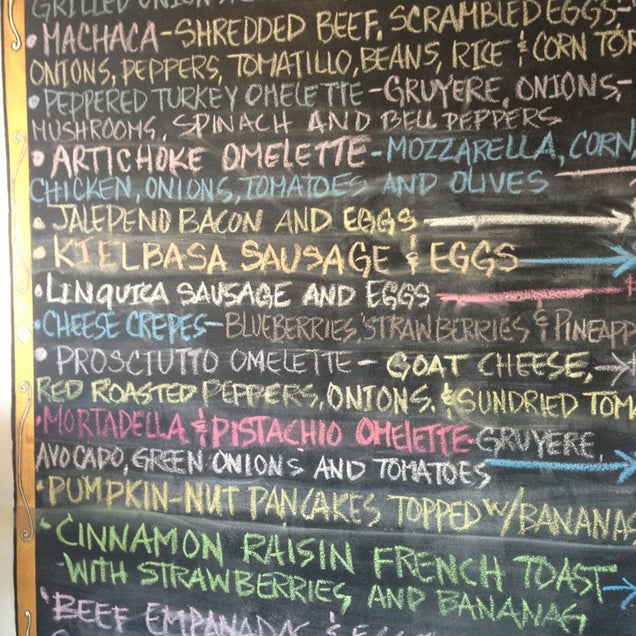 GRILLED ONIONS
• MACHACA - SHREDDED BEEF, SCRAMBLED EGGS -
ONIONS, PEPPERS, TOMATILLO, BEANS, RICE & CORN TOR
• PEPPERED TURKEY OMELETTE - GRUYERE, ONIONS,
MUSHROOMS, SPINACH AND BELL PEPPERS
• ARTICHOKE OMELETTE - MOZZARELLA, CORN,
CHICKEN, ONIONS, TOMATOES AND OLIVES
• JALEPENO BACON AND EGGS
• KIELBASA SAUSAGE & EGGS
• LINQUICA SAUSAGE AND EGGS
• CHEESE CREPES - BLUEBERRIES, STRAWBERRIES & PINEAPP
• PROSCIUTTO OMELETTE - GOAT CHEESE,
RED ROASTED PEPPERS, ONIONS, & SUNDRIED TOM
• MORTADELLA & PISTACHIO OMELETTE - GRUYERE,
AVOCADO, GREEN ONIONS AND TOMATOES
• PUMPKIN-NUT PANCAKES TOPPED W/ BANANAS
• CINNAMON RAISIN FRENCH TOAST
- WITH STRAWBERRIES AND BANANAS
• BEEF EMPANADAS & EGGS